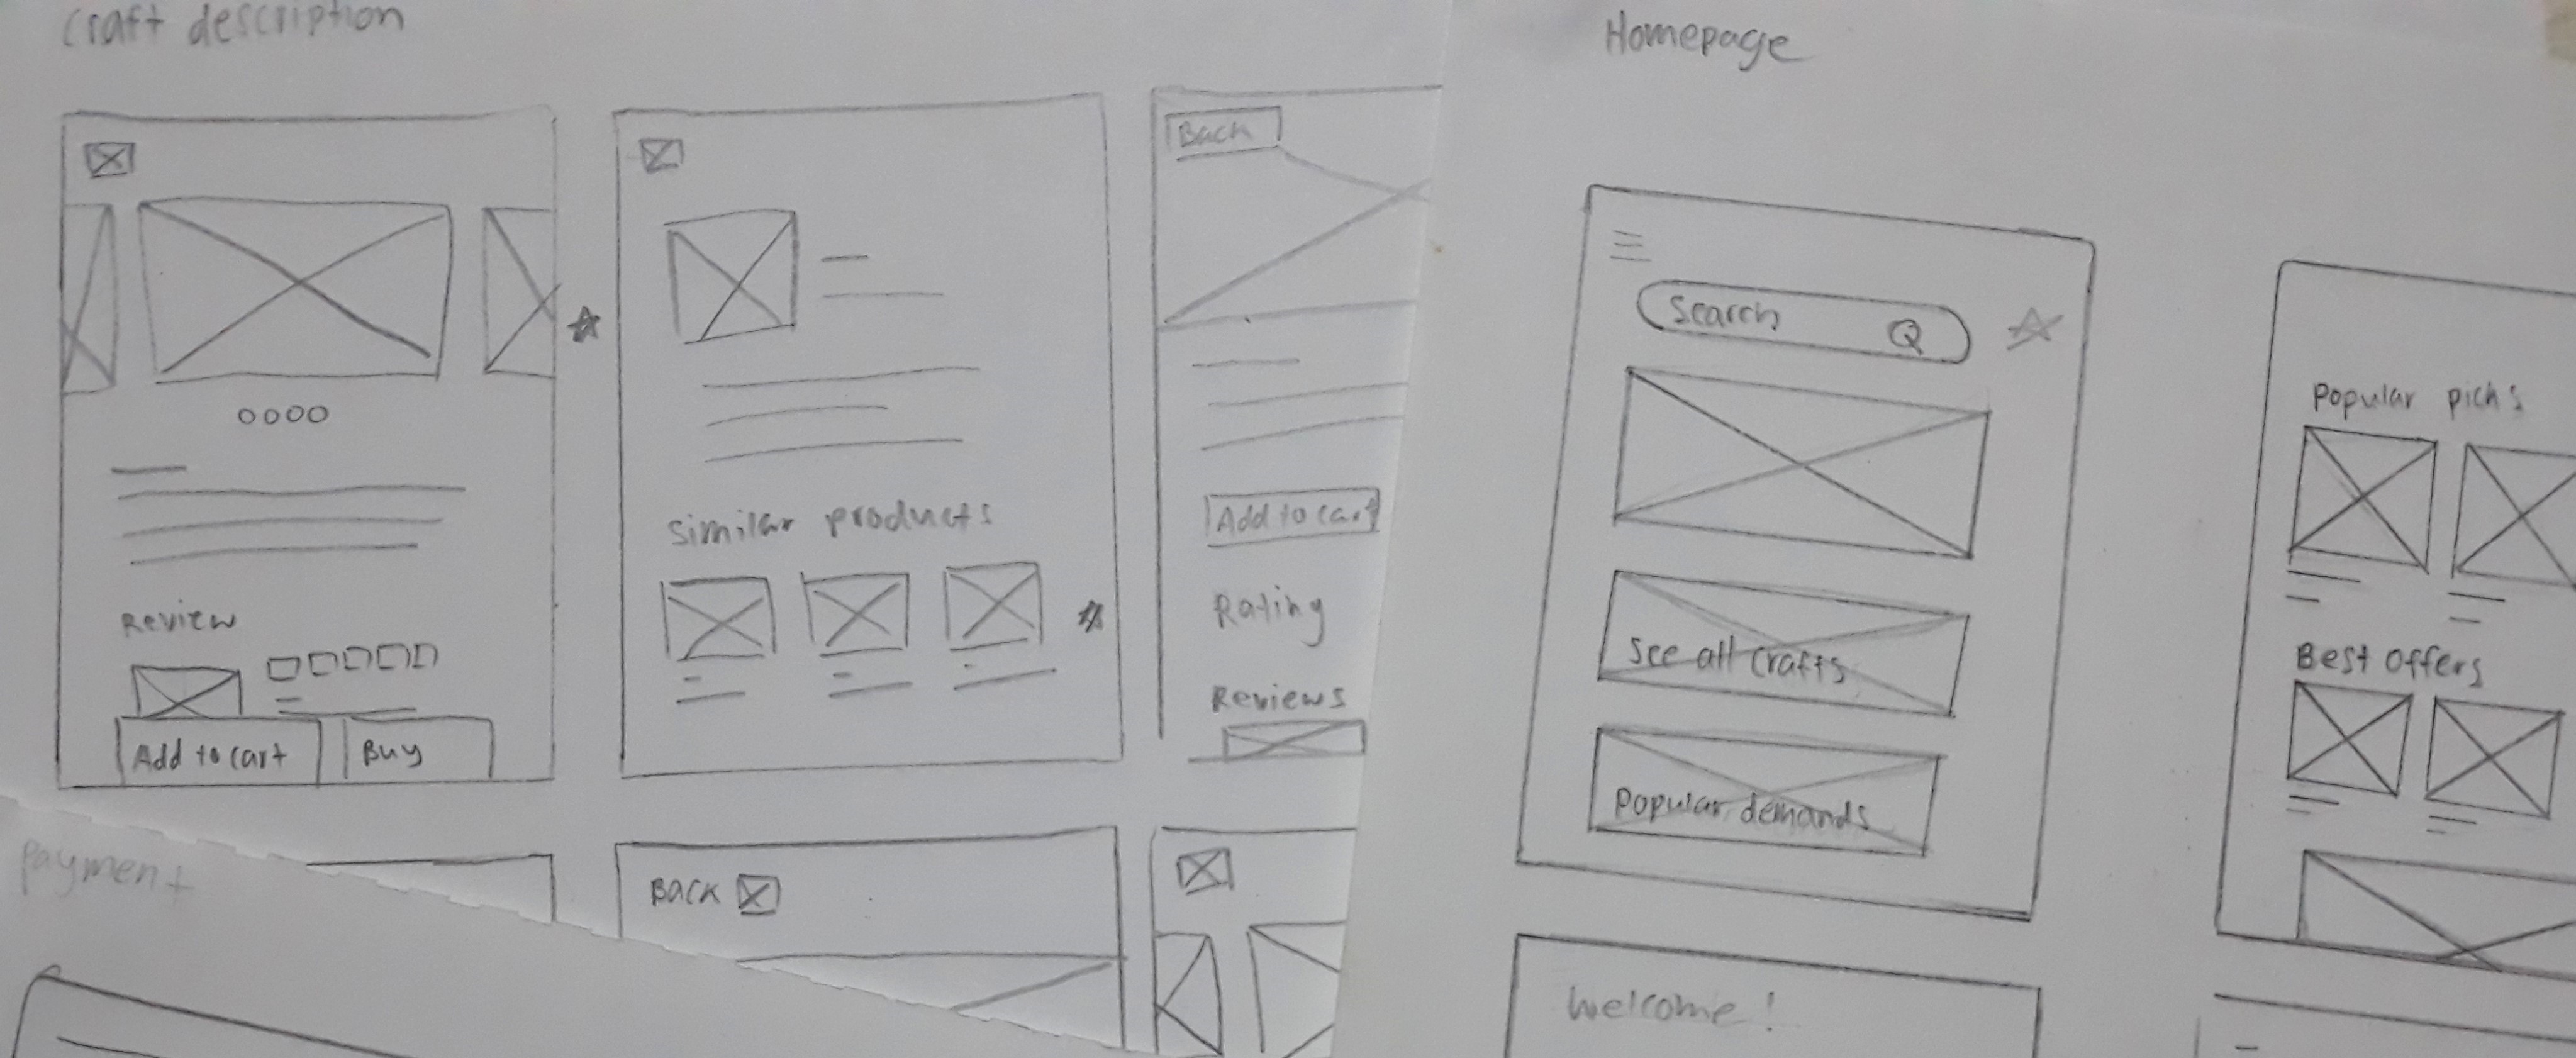 Craft description
Review
Add to cart
Buy
Similar products
Back
Add to cart
Rating
Reviews
Back
Payment
Homepage
Search
See all crafts
Popular demands
Popular picks
Best Offers
Welcome!